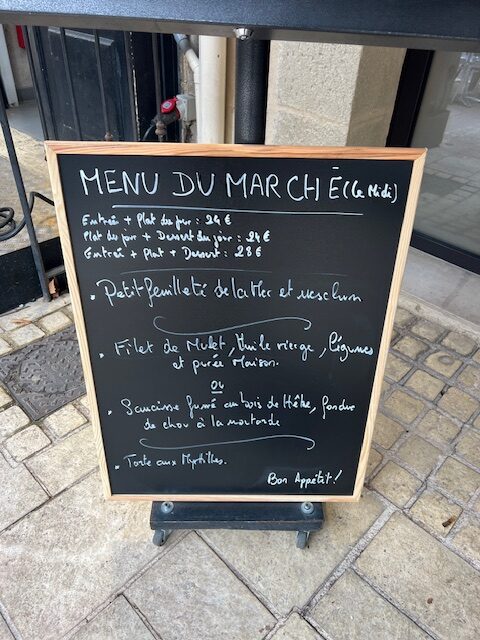 MENU DU MARCHÉ (Le Midi)
Entrée + Plat du jour : 24 €
Plat du jour + Dessert du jour : 24 €
Entrée + Plat + Dessert : 28 €
• Petit feuilleté de la Mer et
• Filet de Mulet, Huile vierge, légumes
et purée Maison.
ou
• Saucisse fumé au bois de Hêtre, fondue
de chou à la moutarde
• Tarte aux Myrtilles.
Bon Appétit !